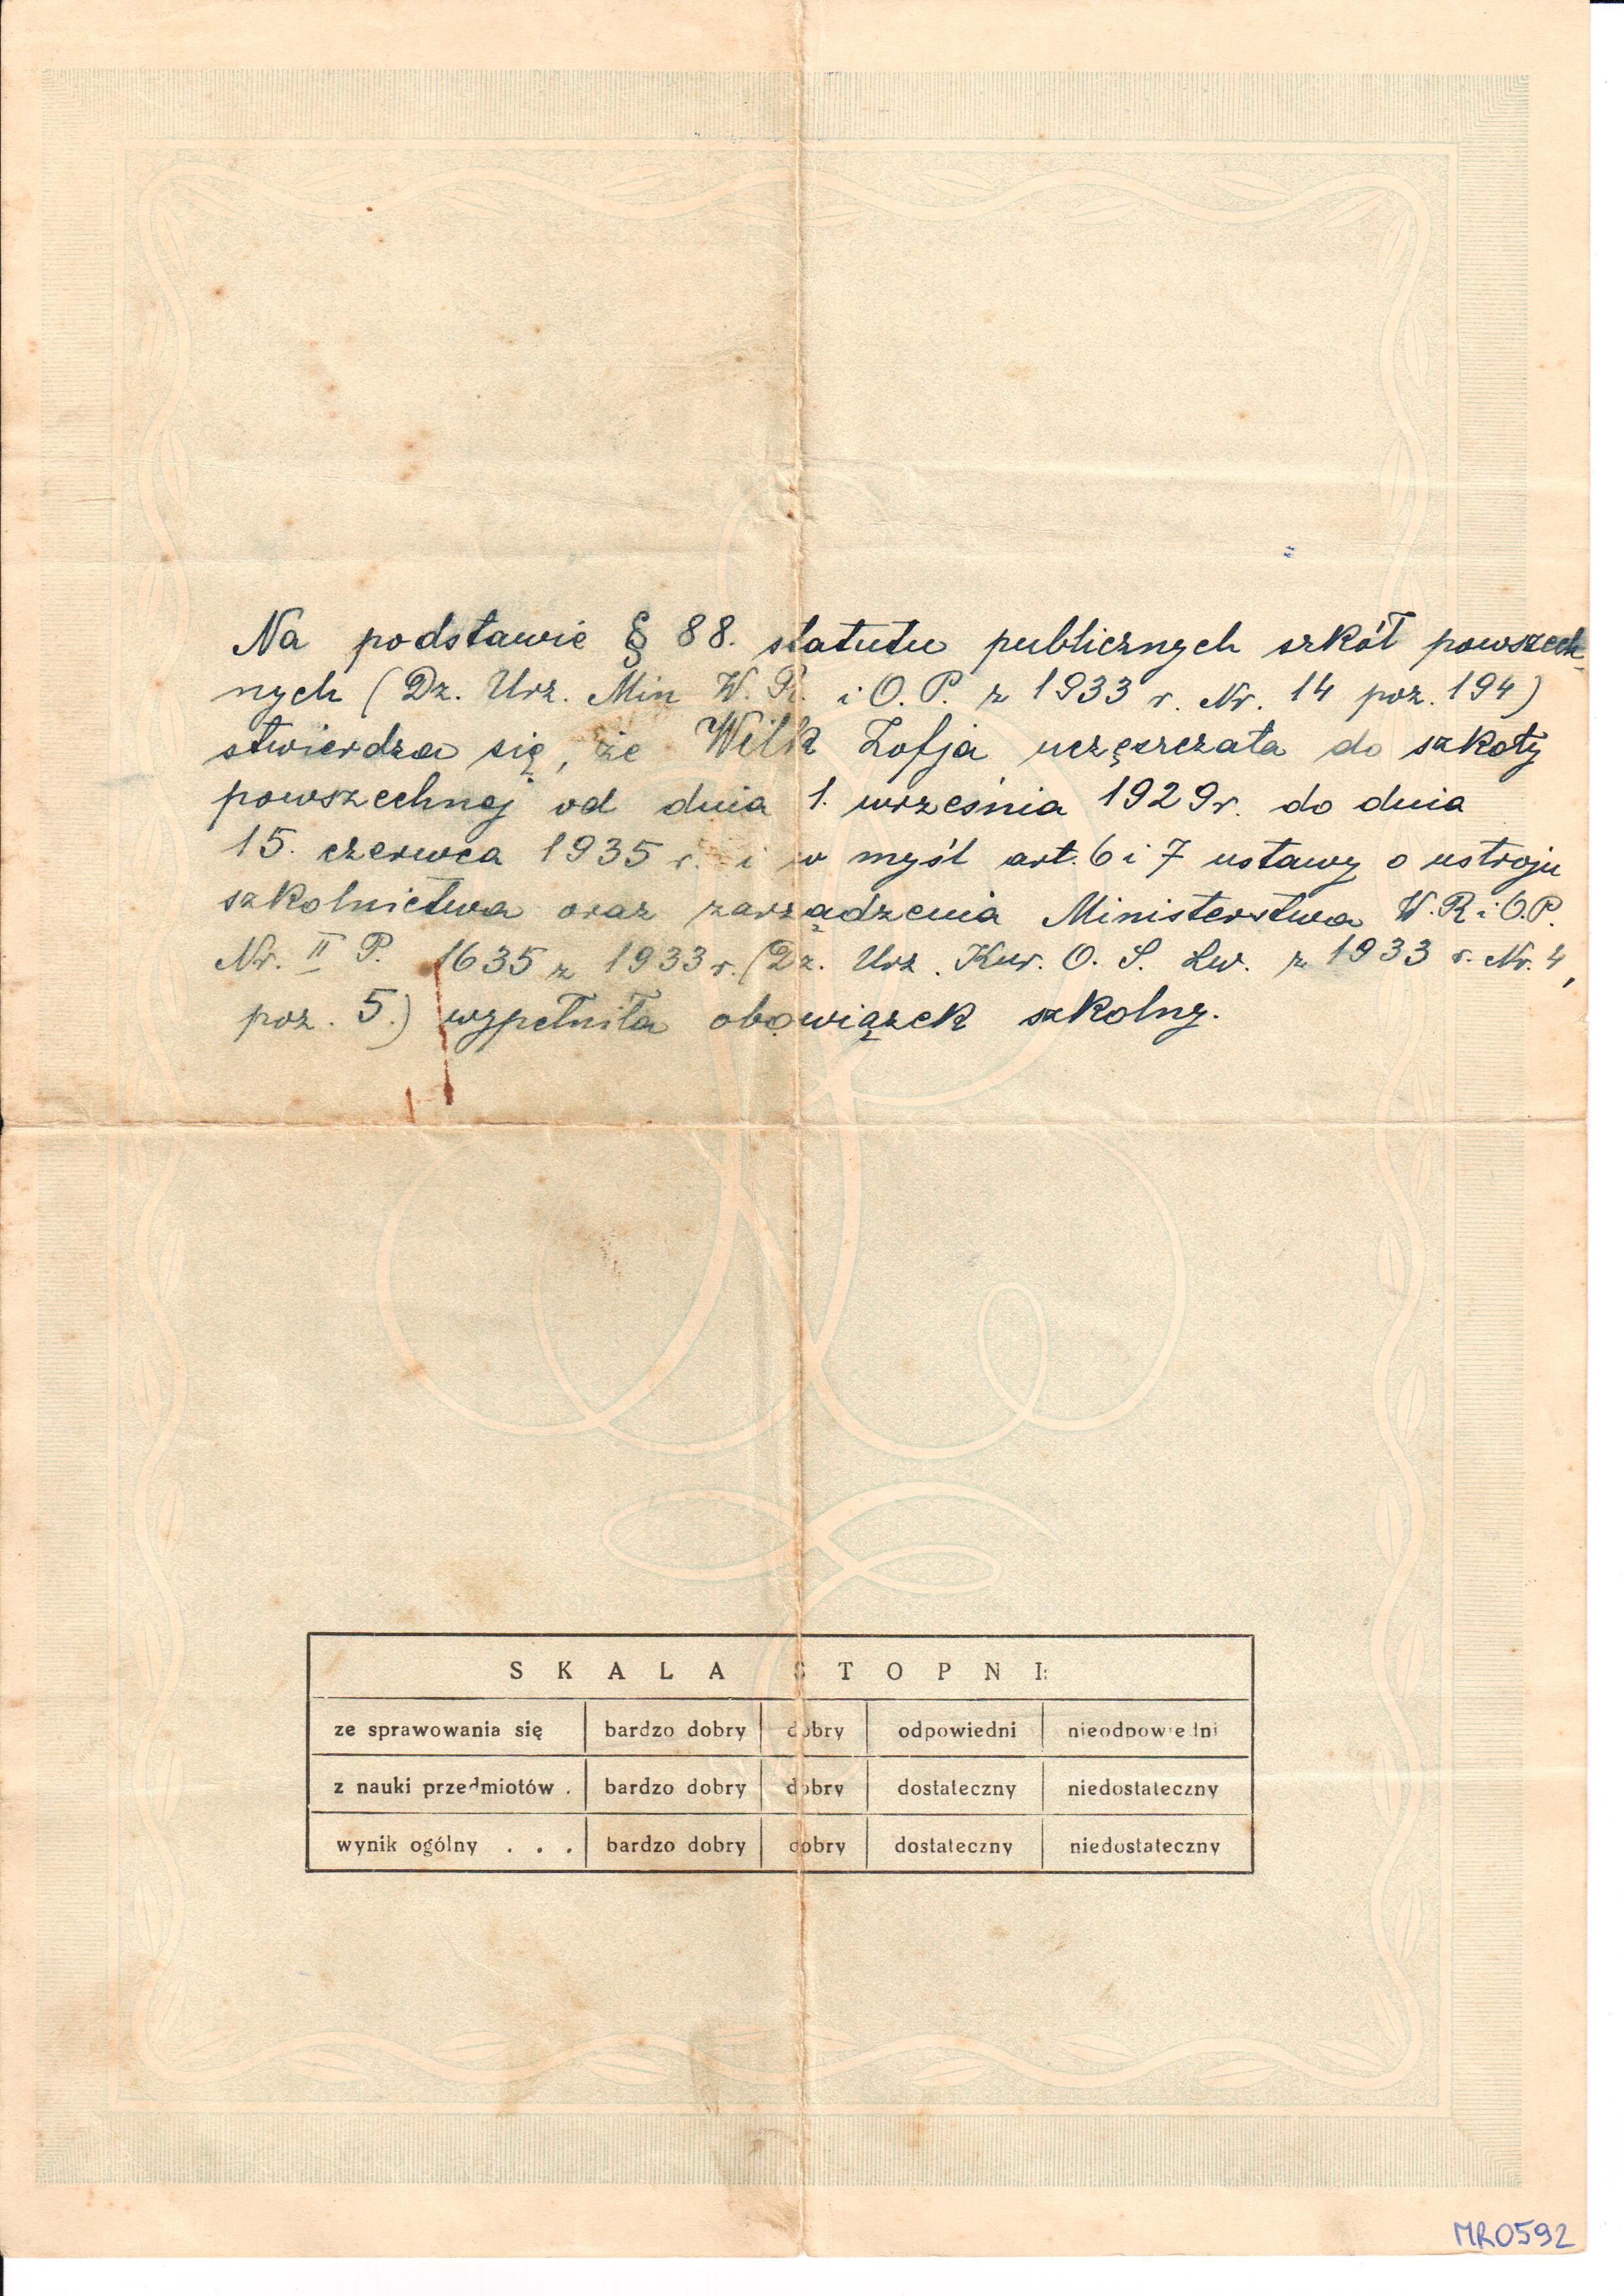 Na podstawie § 88. statutu publicznych szkół powszech-
nych (Dz. Urz. Min W. R. i O. P. z 1933 r. Nr. 14 poz. 194)
stwierdza się, że Wilk Zofja uczęszczała do szkoły
powszechnej od dnia 1. września 1929 r. do dnia
15. czerwca 1935 r. i w myśl art. 6 i 7 ustawy o ustroju
szkolnictwa oraz zarządzenia Ministerstwa W. R. i O. P.
Nr. II P. 1635 z 1933 r. (Dz. Urz. Kur. O. S. Lw. z 1933 r. Nr. 4,
poz. 5.) wypełniła obowiązek szkolny.
SKALA STOPNI:
ze sprawowania się bardzo dobry dobry odpowiedni nieodpowiedni
z nauki przedmiotów . bardzo dobry dobry dostateczny niedostateczny
wynik ogólny . . . bardzo dobry dobry dostateczny niedostateczny
MR0592